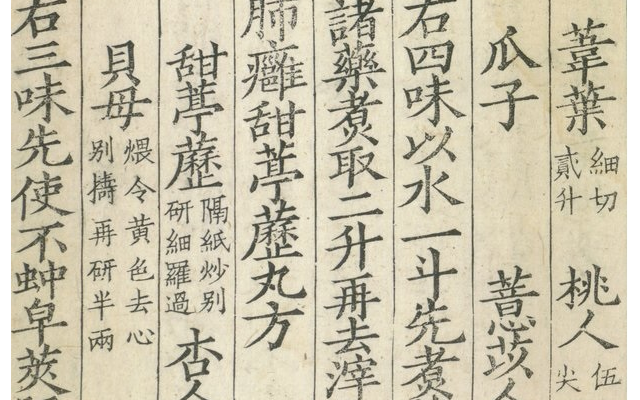 葦葉細切貳升 桃人伍尖
瓜子 薏苡人
右四味以水一斗先煑
諸藥煑取二升再去滓
肺癰甜葶藶丸方
甜葶藶隔紙炒别研細羅過 杏人
貝母煨令黄色去心别擣再研半兩
右三味先使不蚛皁莢